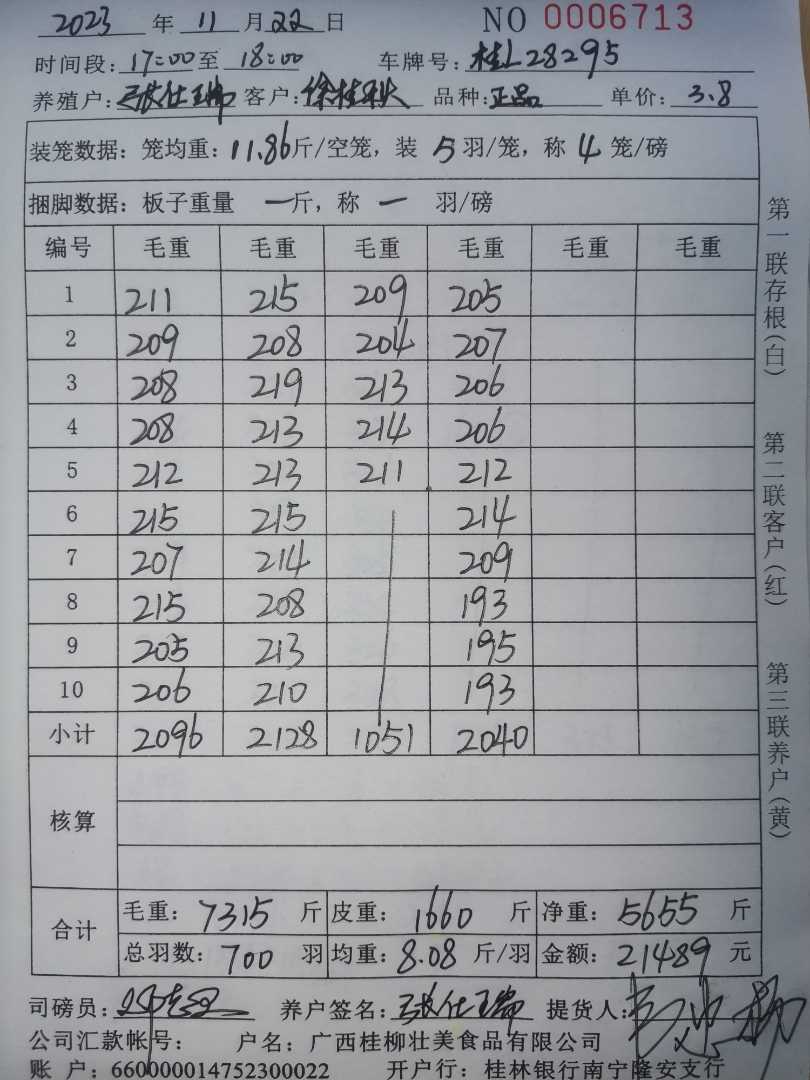 2023 年 11 月 22 日 NO 0006713
时间段: 17:00 至 18:00 车牌号: 桂L28295
养殖户: 张仕瑞 客户: 徐桂秋 品种: 正品 单价: 3.8
装笼数据: 笼均重: 11.86 斤/空笼, 装 5 羽/笼, 称 4 笼/磅
捆脚数据: 板子重量 一 斤, 称 一 羽/磅
编号 毛重 毛重 毛重 毛重 毛重 毛重
1 211 215 209 205
2 209 208 204 207
3 208 219 213 206
4 208 213 214 206
5 212 213 211 212
6 215 215 214
7 207 214 209
8 215 208 193
9 205 213 195
10 206 210 193
小计 2096 2128 1051 2040
核算
合计 毛重: 7315 斤 皮重: 1660 斤 净重: 5655 斤
总羽数: 700 羽 均重: 8.08 斤/羽 金额: 21489 元
司磅员: 养户签名: 张仕瑞 提货人:
公司汇款帐号: 户名: 广西桂柳壮美食品有限公司
账户: 660000014752300022 开户行: 桂林银行南宁隆安支行
第一联存根(白) 第二联客户(红) 第三联养户(黄)